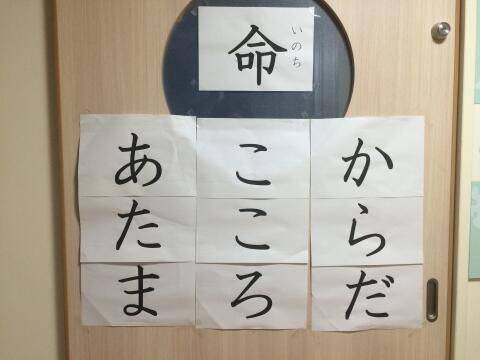 命
いのち
からだ
こころ
あたま